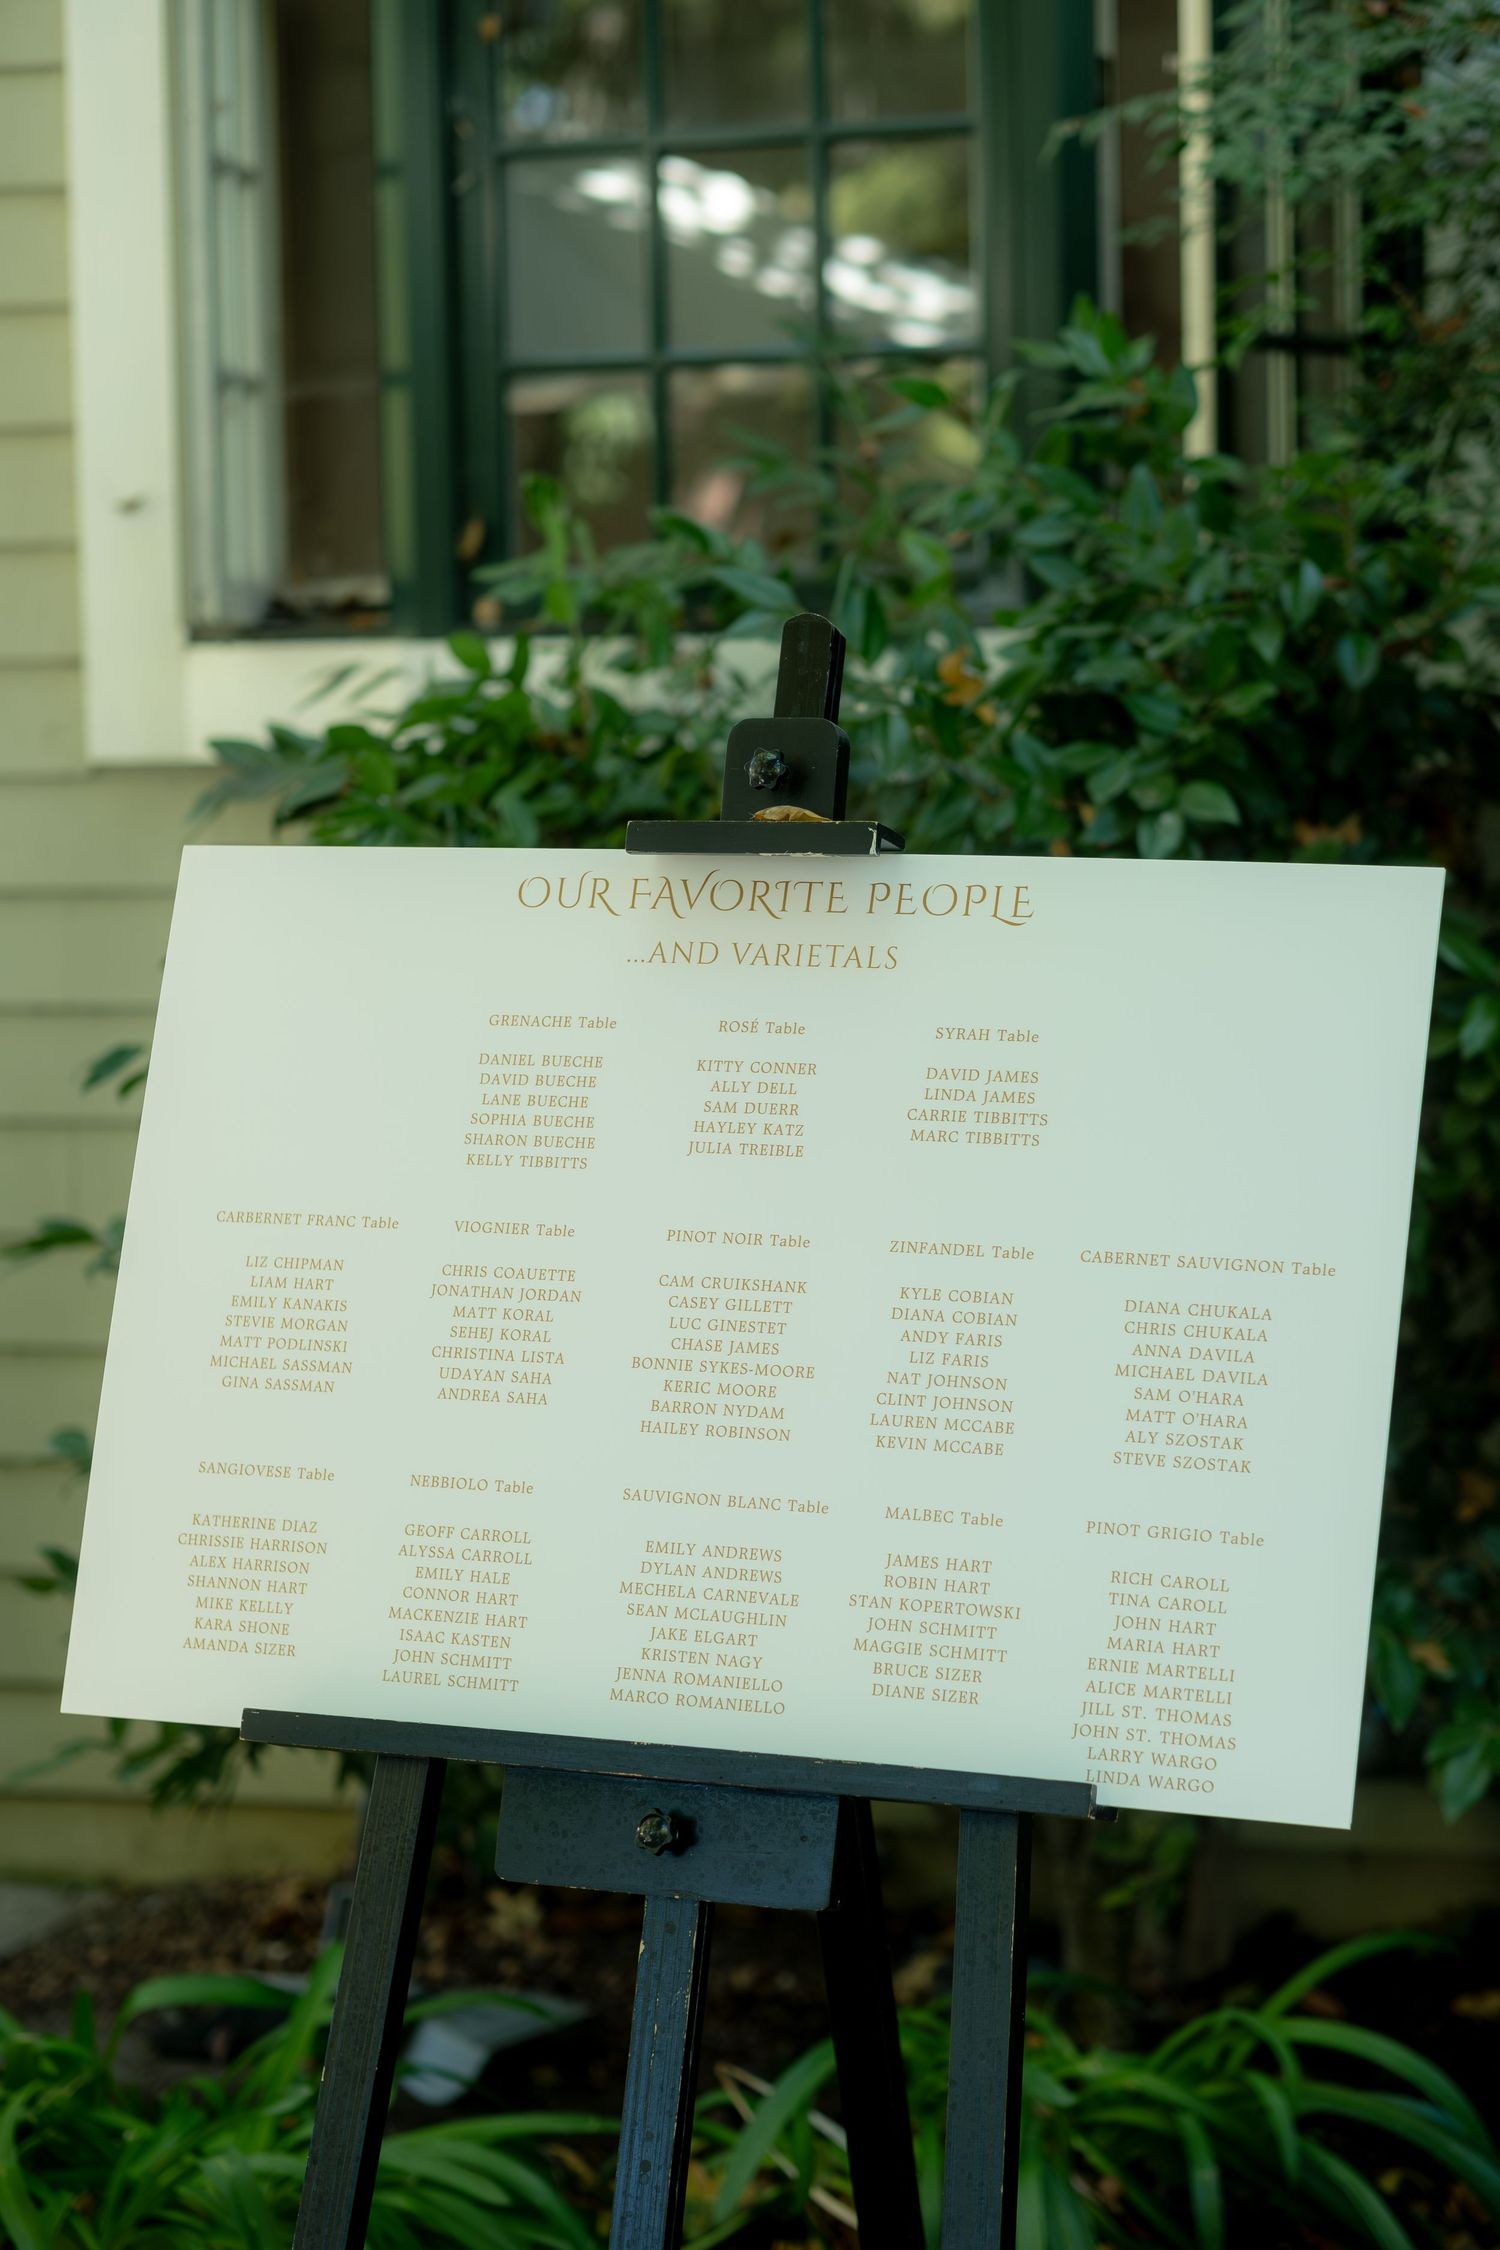 OUR FAVORITE PEOPLE
...AND VARIETALS
GRENACHE Table
DANIEL BUECHE
DAVID BUECHE
LANE BUECHE
SOPHIA BUECHE
SHARON BUECHE
KELLY TIBBITTS
ROSÉ Table
KITTY CONNER
ALLY DELL
SAM DUERR
HAYLEY KATZ
JULIA TREIBLE
SYRAH Table
DAVID JAMES
LINDA JAMES
CARRIE TIBBITTS
MARC TIBBITTS
CARBERNET FRANC Table
LIZ CHIPMAN
LIAM HART
EMILY KANAKIS
STEVIE MORGAN
MATT PODLINSKI
MICHAEL SASSMAN
GINA SASSMAN
VIOGNIER Table
CHRIS COAUETTE
JONATHAN JORDAN
MATT KORAL
SEHEJ KORAL
CHRISTINA LISTA
UDAYAN SAHA
ANDREA SAHA
PINOT NOIR Table
CAM CRUIKSHANK
CASEY GILLETT
LUC GINESTET
CHASE JAMES
BONNIE SYKES-MOORE
KERIC MOORE
BARRON NYDAM
HAILEY ROBINSON
ZINFANDEL Table
KYLE COBIAN
DIANA COBIAN
ANDY FARIS
LIZ FARIS
NAT JOHNSON
CLINT JOHNSON
LAUREN MCCABE
KEVIN MCCABE
CABERNET SAUVIGNON Table
DIANA CHUKALA
CHRIS CHUKALA
ANNA DAVILA
MICHAEL DAVILA
SAM O'HARA
MATT O'HARA
ALY SZOSTAK
STEVE SZOSTAK
SANGIOVESE Table
KATHERINE DIAZ
CHRISSIE HARRISON
ALEX HARRISON
SHANNON HART
MIKE KELLLY
KARA SHONE
AMANDA SIZER
NEBBIOLO Table
GEOFF CARROLL
ALYSSA CARROLL
EMILY HALE
CONNOR HART
MACKENZIE HART
ISAAC KASTEN
JOHN SCHMITT
LAUREL SCHMITT
SAUVIGNON BLANC Table
EMILY ANDREWS
DYLAN ANDREWS
MECHELA CARNEVALE
SEAN MCLAUGHLIN
JAKE ELGART
KRISTEN NAGY
JENNA ROMANIELLO
MARCO ROMANIELLO
MALBEC Table
JAMES HART
ROBIN HART
STAN KOPERTOWSKI
JOHN SCHMITT
MAGGIE SCHMITT
BRUCE SIZER
DIANE SIZER
PINOT GRIGIO Table
RICH CAROLL
TINA CAROLL
JOHN HART
MARIA HART
ERNIE MARTELLI
ALICE MARTELLI
JILL ST. THOMAS
JOHN ST. THOMAS
LARRY WARGO
LINDA WARGO